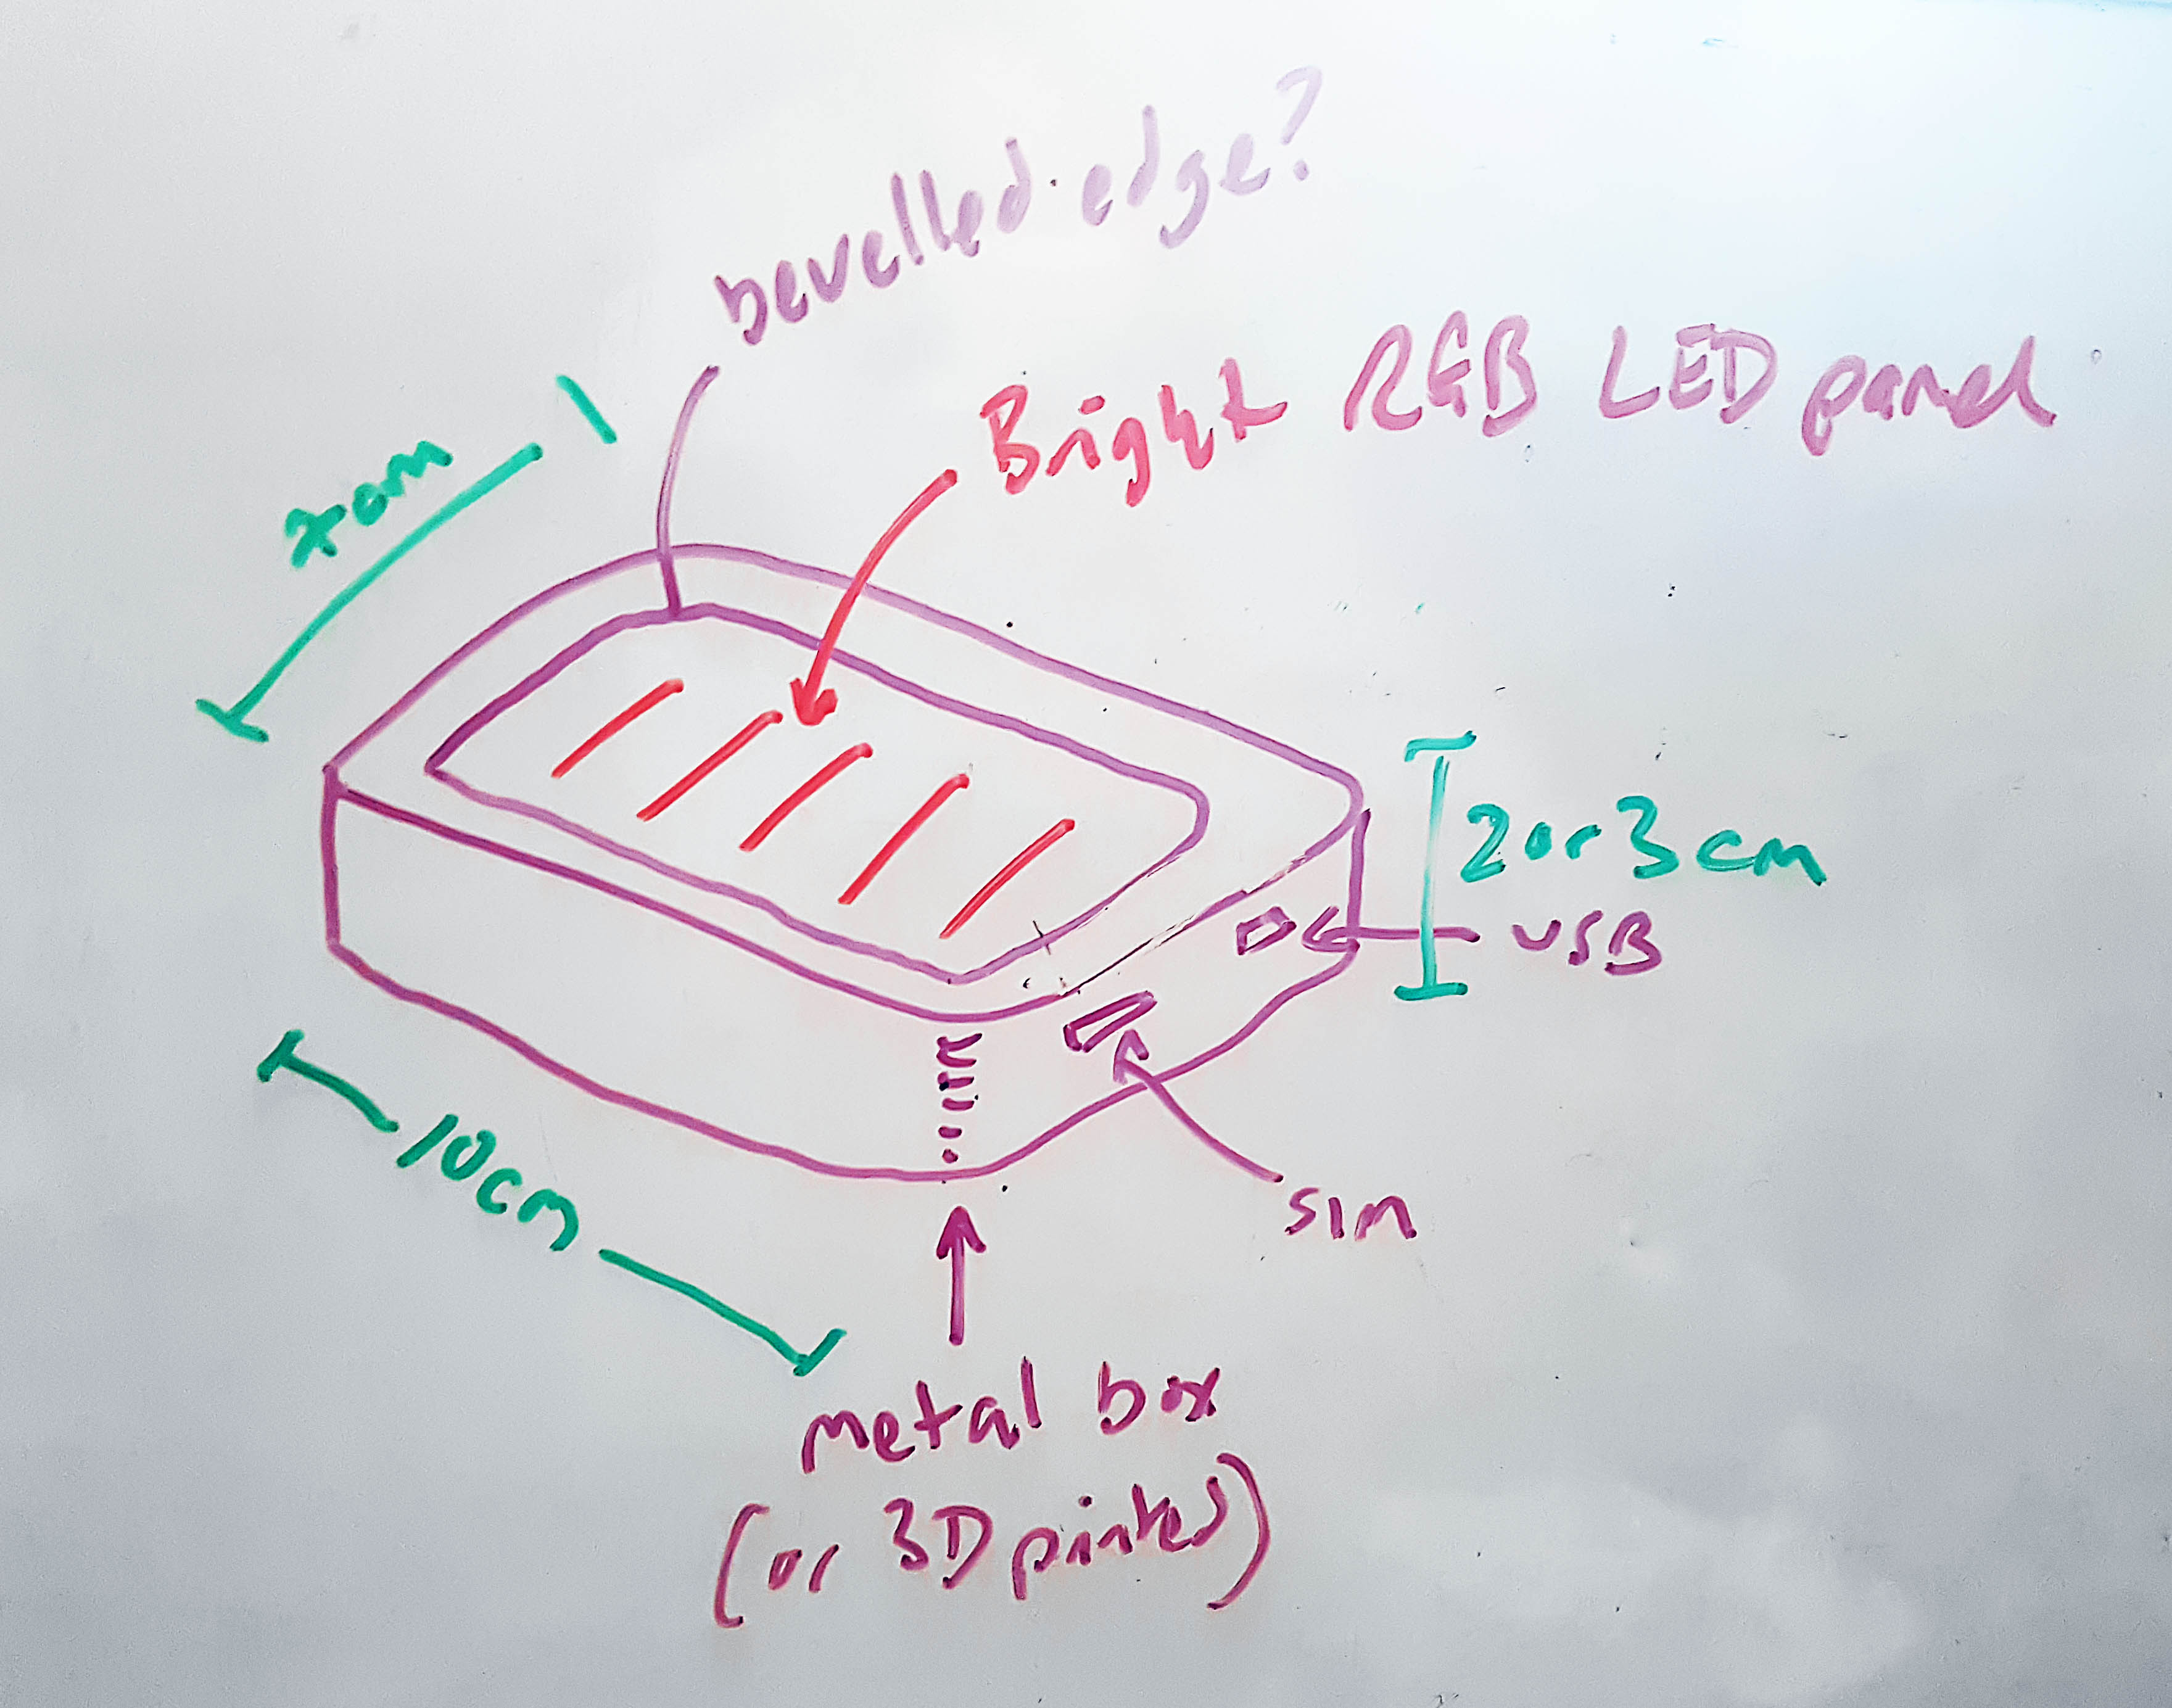 bevelled edge?
Bright RGB LED panel
7cm
2 or 3 cm
USB
10cm
SIM
metal box
(or 3D printed)